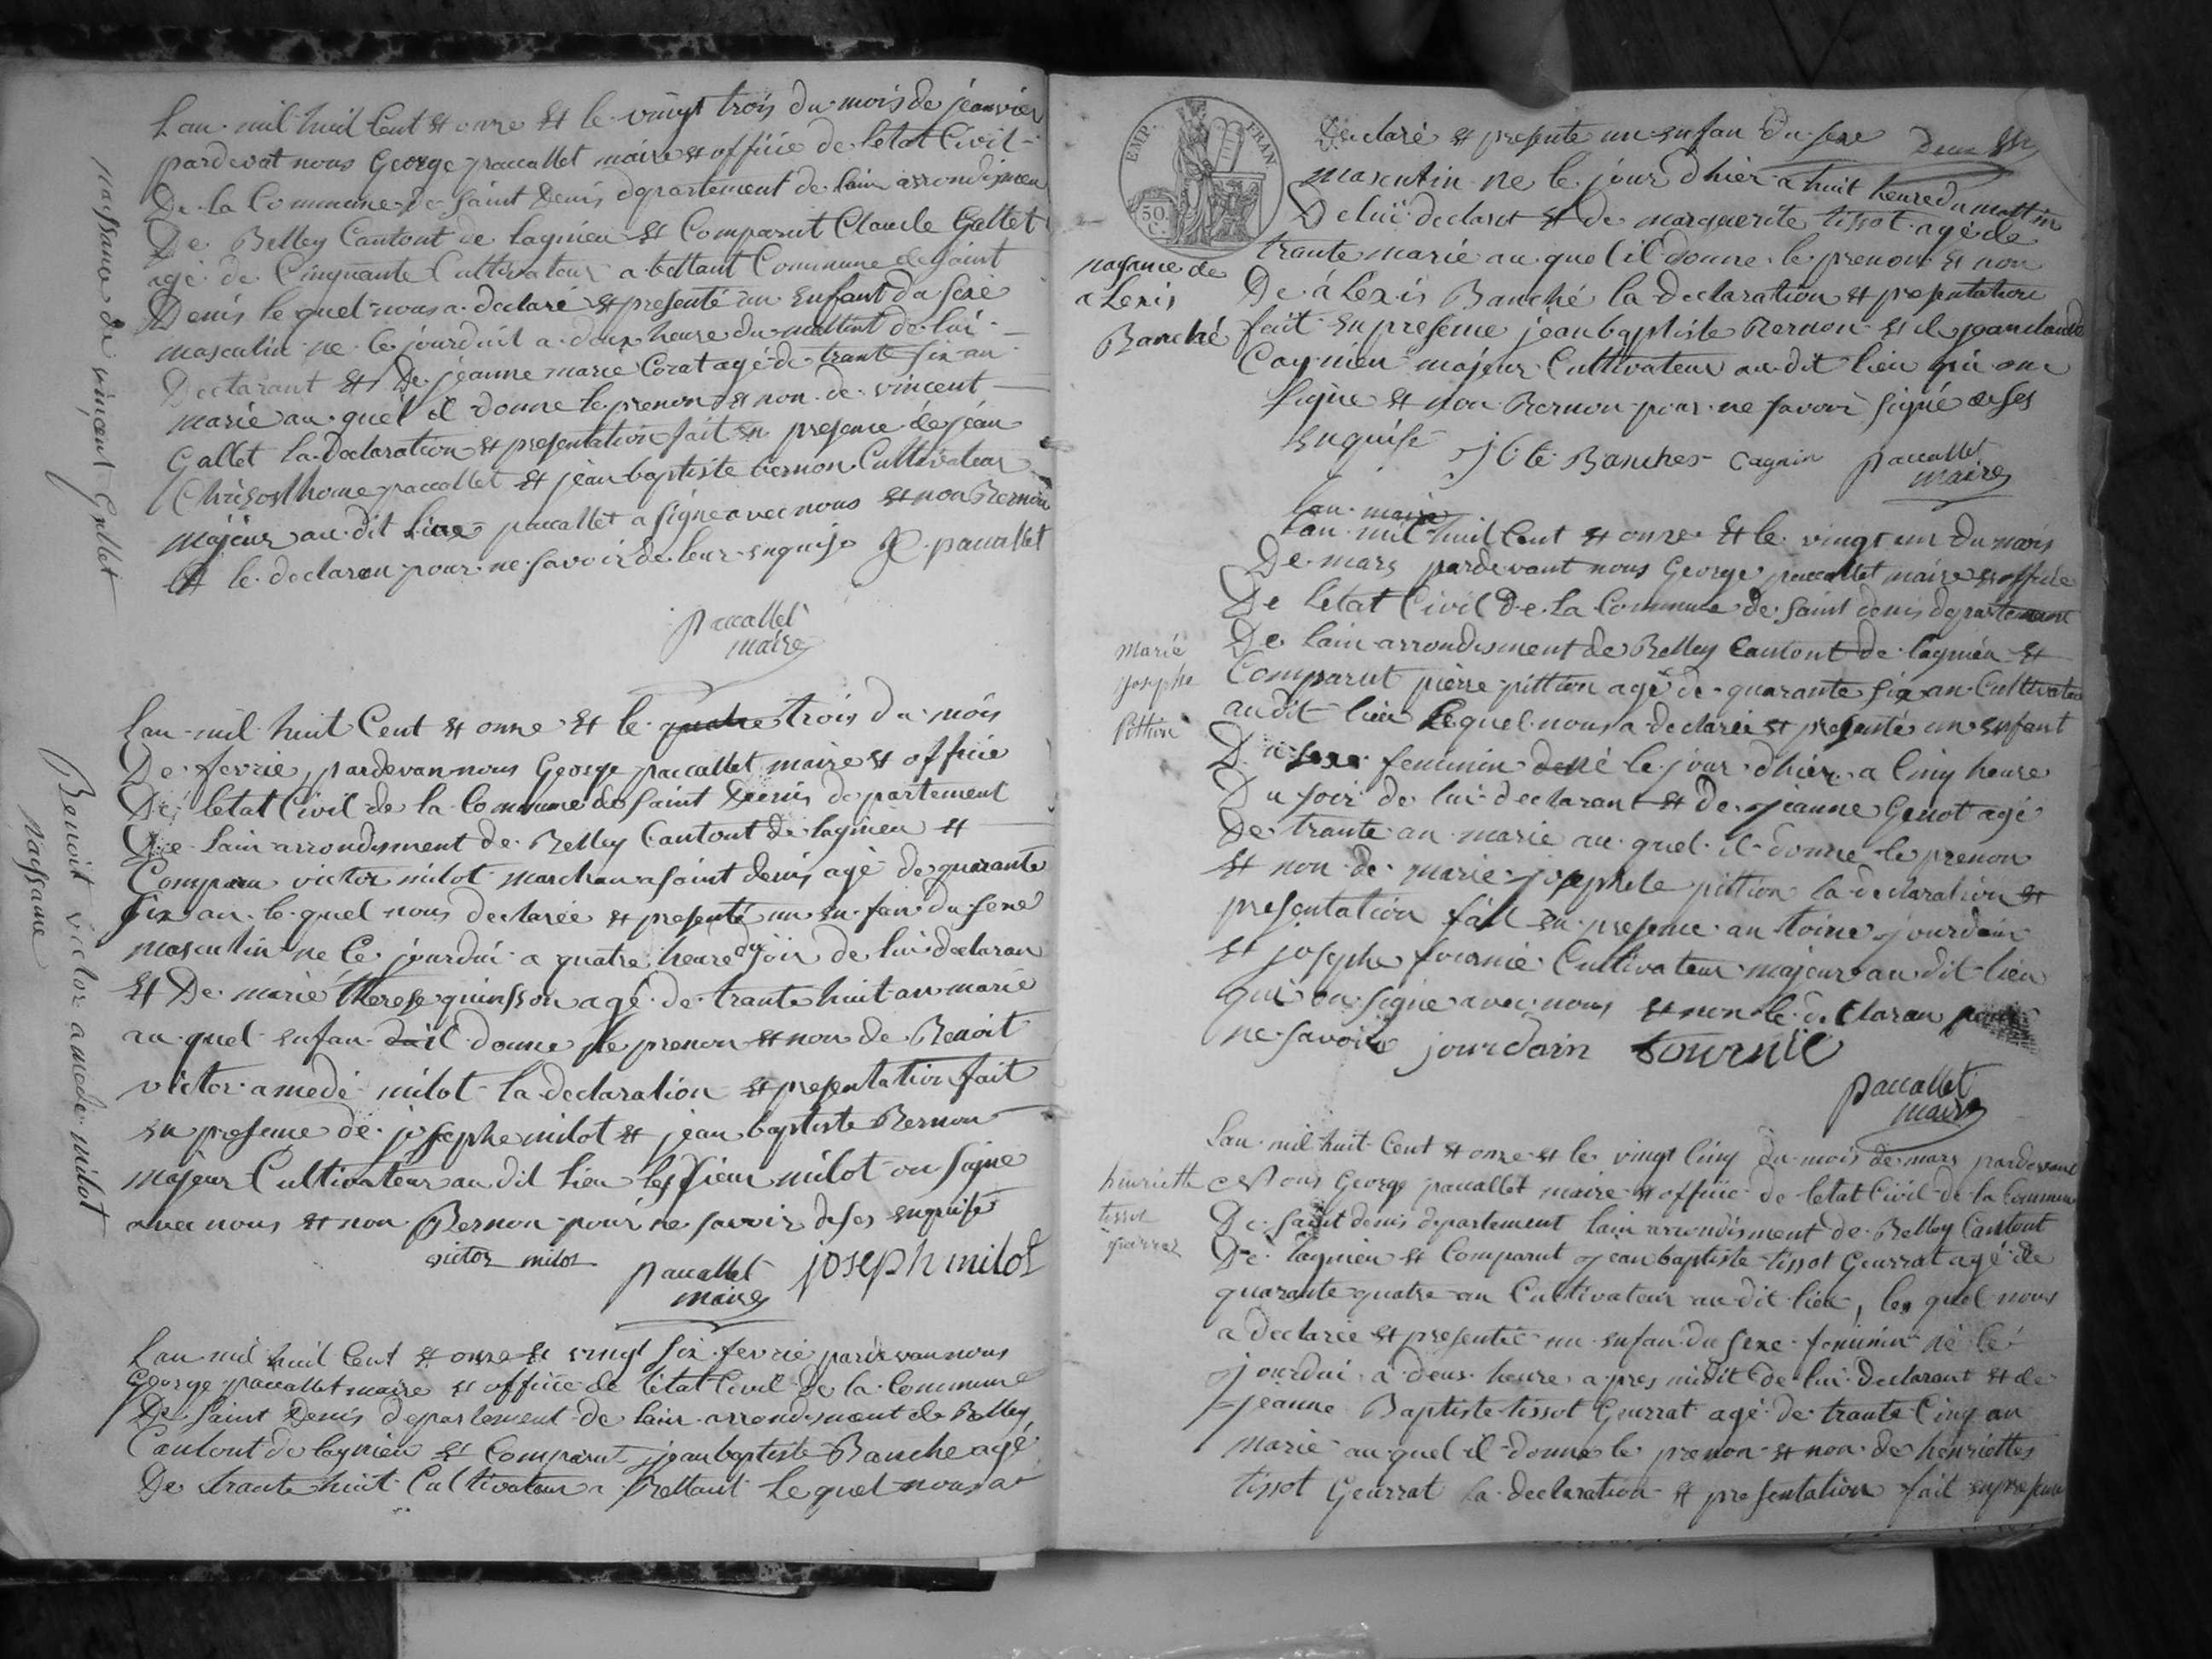 nassance de vincent Gallet
Lan mil huit Cent et onze et le vingt trois du mois de jeanvier
pardevat nous George paccallet maire et officie de letat Civil
De la Commune de saint denis departement de lain arrondismen
De Belley Cantont de lagnieu et Comparut Claude Gallet
agé de Cinquante Cultivateur a bettant Commune de saint
Denis le quel nous a declaré et presenté un enfant du sexe
masculin ne le jourduit a deux heure du mattint de lui
Declarant et De jeanne marie Corat agé de trante six an
marie au quel il donne le prenon et non de vincent
Gallet la declaration et presentation fait en presence de jéan
Chrisosthome paccallet et jean baptiste Bernon Cultivateur
majeur au dit lieu paccallet a signe avec nous et non Bernon
et le declaren pour ne savoir de leur enquise JC paccallet
paccallet
maire
Benoit victor amede milot
Nassance
Lan mil huit Cent et onze et le quatre trois du mois
De fevrie, pardevan nous George paccallet maire et officie
De letat Civil de la Commune de saint Denis departement
De lain arrondisment de Belley Cantont de lagnieu et
Comparu victor milot marchan a saint denis agé de quarante
six an le quel nous declarée et presenté un en fan du sexe
masculin ne le jourdui a quatre heure du soir de lui declaran
et De marie therese quinsson agé de trante huit an marie
au quel enfan il donne le prenon et non de Benoit
victor amedé milot la declaration et presentation fait
en presence de josephe milot et jean baptiste Bernon
majeur Cultivateur au dit lieu les sieur milot on signe
avec nous et non Bernon pour ne savoir de ses enquise
victor milot paccallet joseph milot
maire
Lan mil huit Cent et onze et vingt six fevrie pardevan nous
George paccallet maire et officie de letat Civil De la Commune
De saint Denis departement de lain arrondisment de Belley
Cantont de lagnieu et Comparut jean baptiste Banche agé
De trante huit Cultivateur a Bettant Le quel nous a
EMP. FRAN
50. C.
Declaré et presente un enfan du sexe
Deux
masculin ne le jour dhier a huit heure du mattin
De lui declarat et de marguerite tissot agé de
trante marié au quel il donne le prenom et non
nassance de
alexis
Banché
De alexis Banché la declaration et presentation
fait en presence jean baptiste Bernon et de jean claude
Cagnien majeur Cultivateur au dit lieu qui on
signe et non Bernon pour ne savoir signé de ses
enquise Jbte Banches Cagnin paccallet
maire
Lan maire
Lan mil huit Cent et onze et le vingt un du mois
De mars pardevant nous George paccallet maire et officie
De letat Civil De la Commune de saint denis departement
De lain arrondisment de Belley Cantont de lagnieu et
marié
josephe
Pittion
Comparut pierre pittion agé de quarante six an Cultivateur
au dit lieu Lequel nous a declarée et presenté un enfant
Du sexe feminin né le jour dhier a Cinq heure
Du soir de lui declarant et de jeanne Genot agé
De trante an marie au quel il donne le prenon
et non de marie josephete pittion la declaration et
presentation fait en presence antoine jourdain
et josephe fournié Cultivateur majeur au dit lieu
qui on signe avec nous et non le declaran pour
ne savoir jourdain fournié
paccallet
maire
Lan mil huit Cent et onze et le vingt Cinq du mois de mars pardevant
henriette
tissot
guerrat
nous George paccallet maire et officie de letat Civil de la Commune
De saint denis departement lain arrondisment de Belley Cantont
De lagnieu et Comparut jean baptiste tissot Geurrat agé de
quarante quatre an Cultivateur au dit lieu, les quel nous
a declarée et presentée un enfan du sexe feminin né le
jourdui a deux heure apres midit de lui declarant et de
jeanne Baptiste tissot Geurrat agé de trante Cinq an
marie au quel il donne le prenon et non de henriettes
tissot Geurrat la declaration et presentation fait enpresence